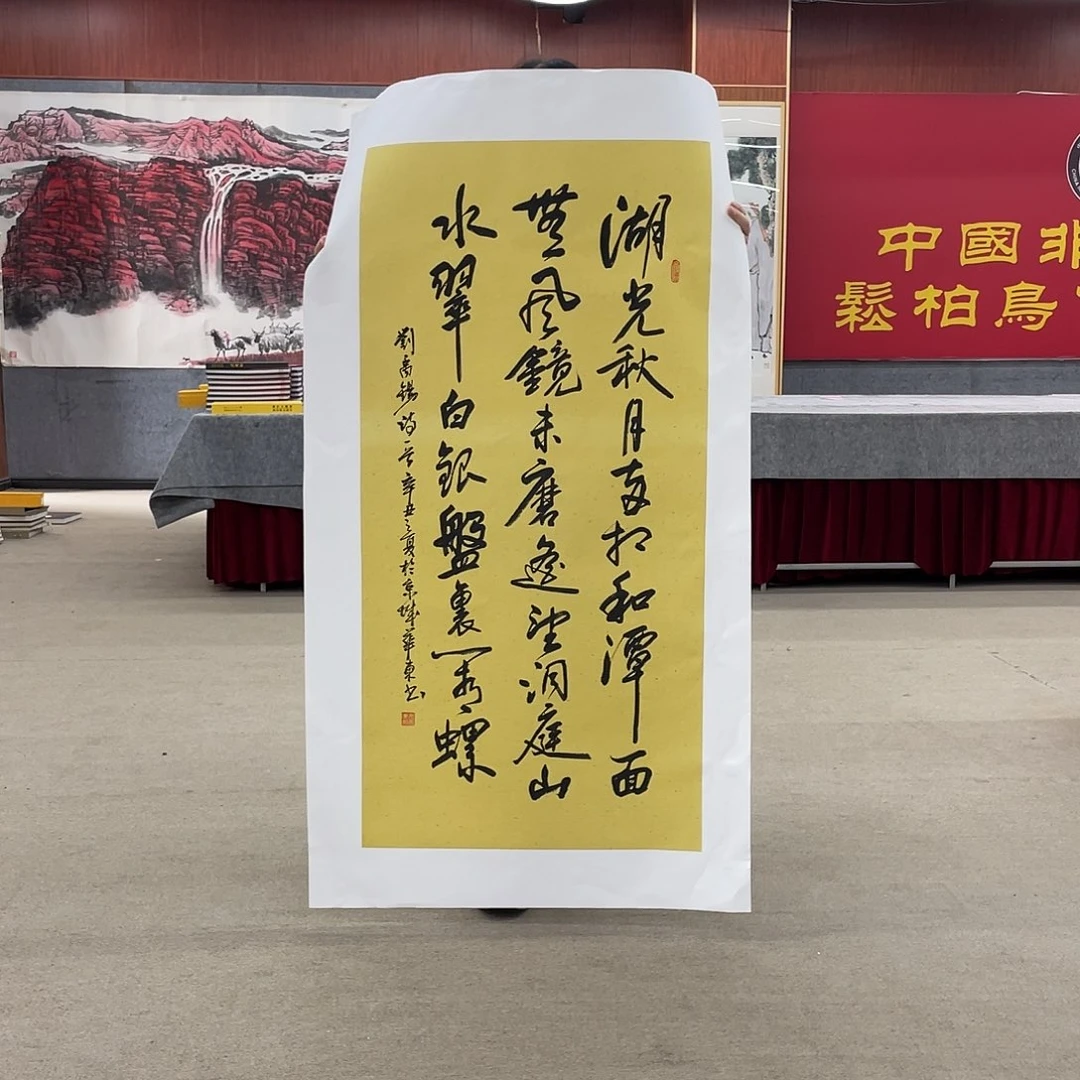 湖光秋月兩相和潭面
無風鏡未磨遙望洞庭山
水翠白銀盤裏一青螺
劉禹錫詩一首辛丑之夏於京城華東书
中國非
鬆柏鳥